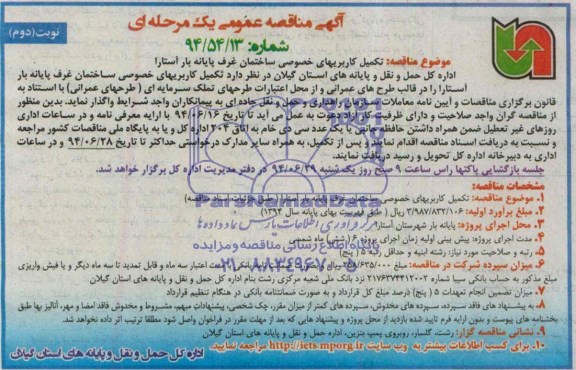 آگهی مناقصه عمومی یک مرحله ای
نوبت (دوم)
شماره: ۹۴/۵۴/۱۳
موضوع مناقصه: تکمیل کاربریهای خصوصی ساختمان غرف پایانه بار آستارا
اداره کل حمل و نقل و پایانه های استان گیلان در نظر دارد تکمیل کاربریهای خصوصی ساختمان غرف پایانه بار
آستارا را در قالب طرح های عمرانی و از محل اعتبارات طرحهای تملک سرمایه ای (طرحهای عمرانی) با استناد به
قانون برگزاری مناقصات و آیین نامه معاملات سازمان راهداری و حمل و نقل جاده ای به پیمانکاران واجد شرایط واگذار نماید. بدین منظور
از مناقصه گران واجد صلاحیت و دارای ظرفیت کار آزاد دعوت به عمل می آید تا تاریخ ۹۴/۰۶/۱۶ با ارایه معرفی نامه و در ساعات اداری
روزهای غیر تعطیل ضمن همراه داشتن حافظه جانبی یا یک عدد سی دی خام به اتاق ۲۰۳ اداره کل و یا به پایگاه ملی مناقصات کشور مراجعه
و نسبت به دریافت اسناد مناقصه اقدام نمایند و پس از تکمیل، به همراه سایر مدارک درخواستی حداکثر تا تاریخ ۹۴/۰۶/۲۸ و در ساعات
اداری به دبیرخانه اداره کل تحویل و رسید دریافت نمایند.
جلسه بازگشایی پاکتها راس ساعت ۹ صبح روز یک شنبه ۹۴/۰۶/۲۹ در دفتر مدیریت اداره کل برگزار خواهد شد.
مشخصات مناقصه:
۱. موضوع مناقصه: تکمیل کاربریهای خصوصی ساختمان غرف پایانه بار آستارا (طبق جزئیات اسناد مناقصه)
۲. مبلغ برآورد اولیه: ۳/۹۸۷/۸۳۲/۱۰۶ ریال (طبق فهرست بهای پایانه سال ۱۳۹۴)
۳. محل اجرای پروژه: پایانه بار شهرستان آستارا
۴. مدت اجرای پروژه: پیش بینی اولیه زمان اجرای پروژه ۶ (شش) ماه شمسی
۵. رتبه و صلاحیت مورد نیاز: رشته ابنیه و حداقل رتبه ۵ (پنج)
۶. میزان سپرده شرکت در مناقصه: مبلغ ۲۵۸/۶۳۵/۰۰۰
اعتبار سه ماه و قابل تمدید تا سه ماه دیگر و یا فیش واریزی
مبلغ مذکور به حساب بانکی سیبا شماره ۲۱۷۶۳۷۴۴۱۲۰۰۲ نزد بانک ملی شعبه مرکزی رشت بنام اداره کل حمل و نقل و پایانه های استان گیلان
۷. میزان تضمین انجام تعهدات ۵ (پنج) درصد مبلغ کل قرارداد و به صورت ضمانتنامه بانکی در هنگام تنظیم قرارداد
۸. به پیشنهاد های فاقد سپرده، سپرده های مخدوش، سپرده های کمتر از میزان مقرر، چک شخصی، پیشنهادات مبهم، مشروط و مخدوش فاقد امضا و مهر، آنالیز بها طبق
بخشنامه های پیوست و بدون ارایه فرم تایید شده بازدید از محل پروژه و پیشنهاد هایی که بعد از مهلت مقرر در فراخوان واصل شود مطلقا ترتیب اثر داده نخواهد شد.
۹. نشانی مناقصه گزار: رشت، گلسار، روبروی پمپ بنزین، اداره کل حمل و نقل و پایانه های استان گیلان
۱۰. برای کسب اطلاعات بیشتر به وب سایت http://iets.mporg.ir مراجعه نمایید.
اداره کل حمل و نقل و پایانه های استان گیلان
ParsNamadData
مرکز فرآوری اطلاعات پارس نماد داده ها
پایگاه اطلاع رسانی مناقصه و مزایده
۰۲۱-۸۸۳۴۹۶۷۰-۵